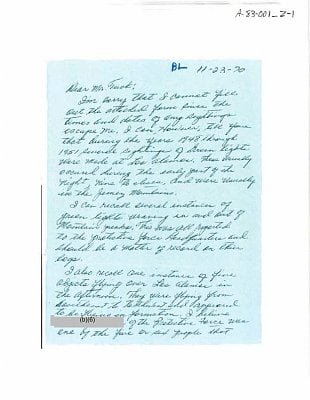 A-83-001_Z-1
BL 11-23-70
Dear Mr. Tuck:
I'm sorry that I cannot fill
out the attached form since the
times and dates of any sightings
escape me. I can however, tell you
that during the years 1948 through
1951 several sightings of Green lights
were made at Los Alamos. These usually
occurred during the early part of the
night, nine to eleven, and were usually
in the Jemez Mountains.
I can recall several instances of
green lights weaving in and out of
Mountain peaks. This was all reported
to the protective force headquarters and
should be a matter of record on their
logs.
I also recall one instance of five
objects flying over Los Alamos in
the afternoon. They were flying from
to and appeared
to be flying in formation. I believe
(b)(6) of the Protective Force was
one of the five or six people that